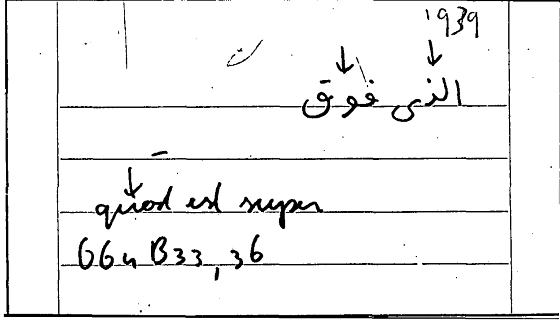 1939
الذى فوق
quod est super
664 B33,36